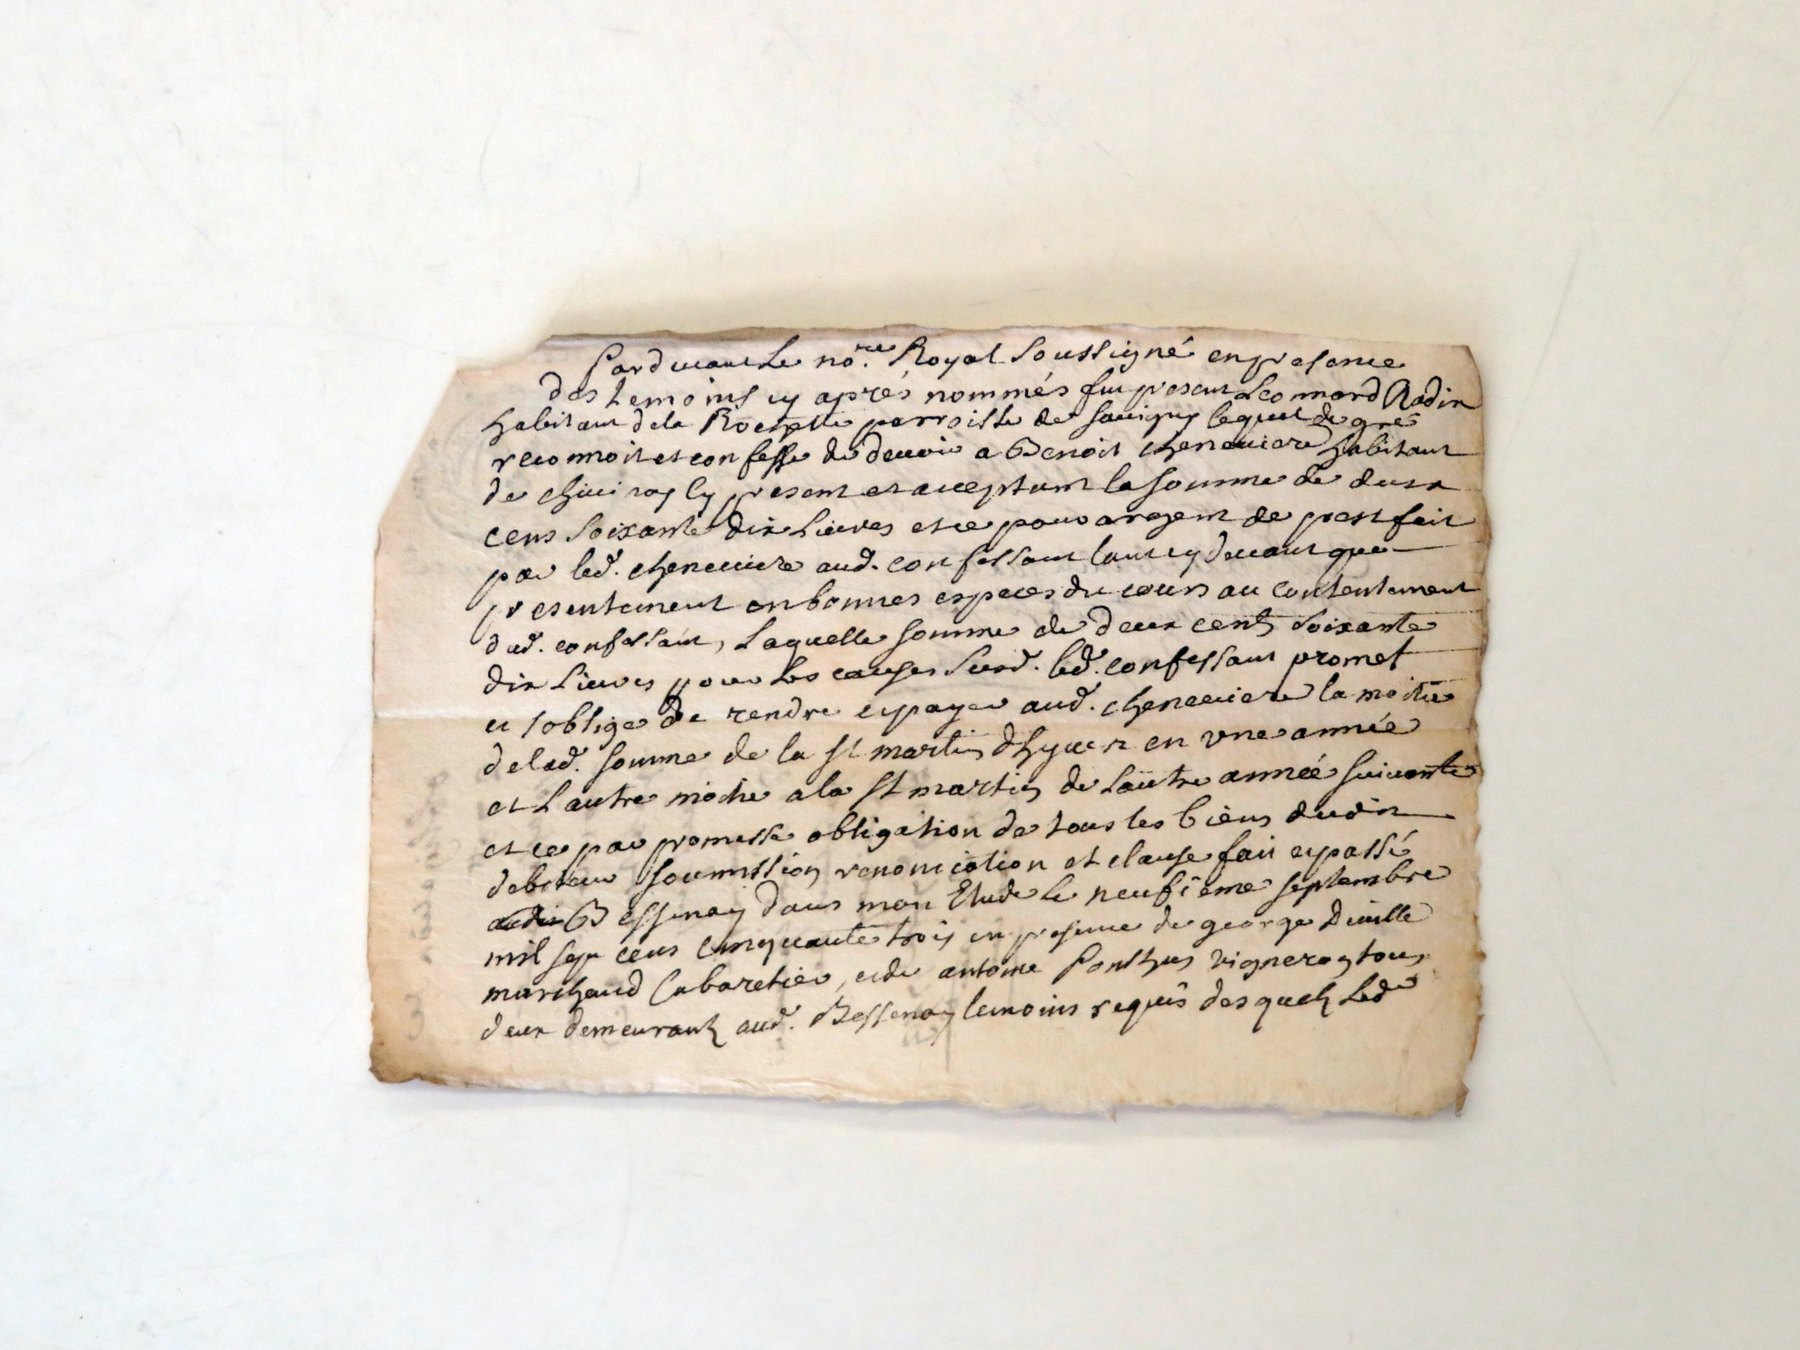 Pardevant Le no.re Royal Soussigné en presence
des temoins cy aprés nommés fut present Leonnard Radix
habitant dela Rochette parroisse de Savigny lequel de gré
reconnoit et confesse de devoir a Benoit cheneviere habitant
de chivisoy cy present et acceptant la somme de deux
cens soixante dix Livres et ce pour argent de prest fait
par led. cheneviere aud. confessant tant cy devant que
presentement en bonnes especes du cours au contentement
dud. confessant, Laquelle somme de deux cents soixante
dix Livres pour Les causes susd. led. confessant promet
et s'oblige de rendre et payer aud. cheneviere la moitié
de lad. somme de la st martin d'hyver en une année
et L'autre moitié a la st martin de Lautre année suivante
et ce par promesse obligation de tous les biens dudit
debiteur soumission renonciation et clause fait et passé
Bessenay dans mon Etude le neufieme septembre
mil sept cens cinquante trois en presence de george Diville
marchand Cabaretier, et de antoine Ponthus vigneron tous
deux demeurants aud. Bessenay temoins requis desquels Led